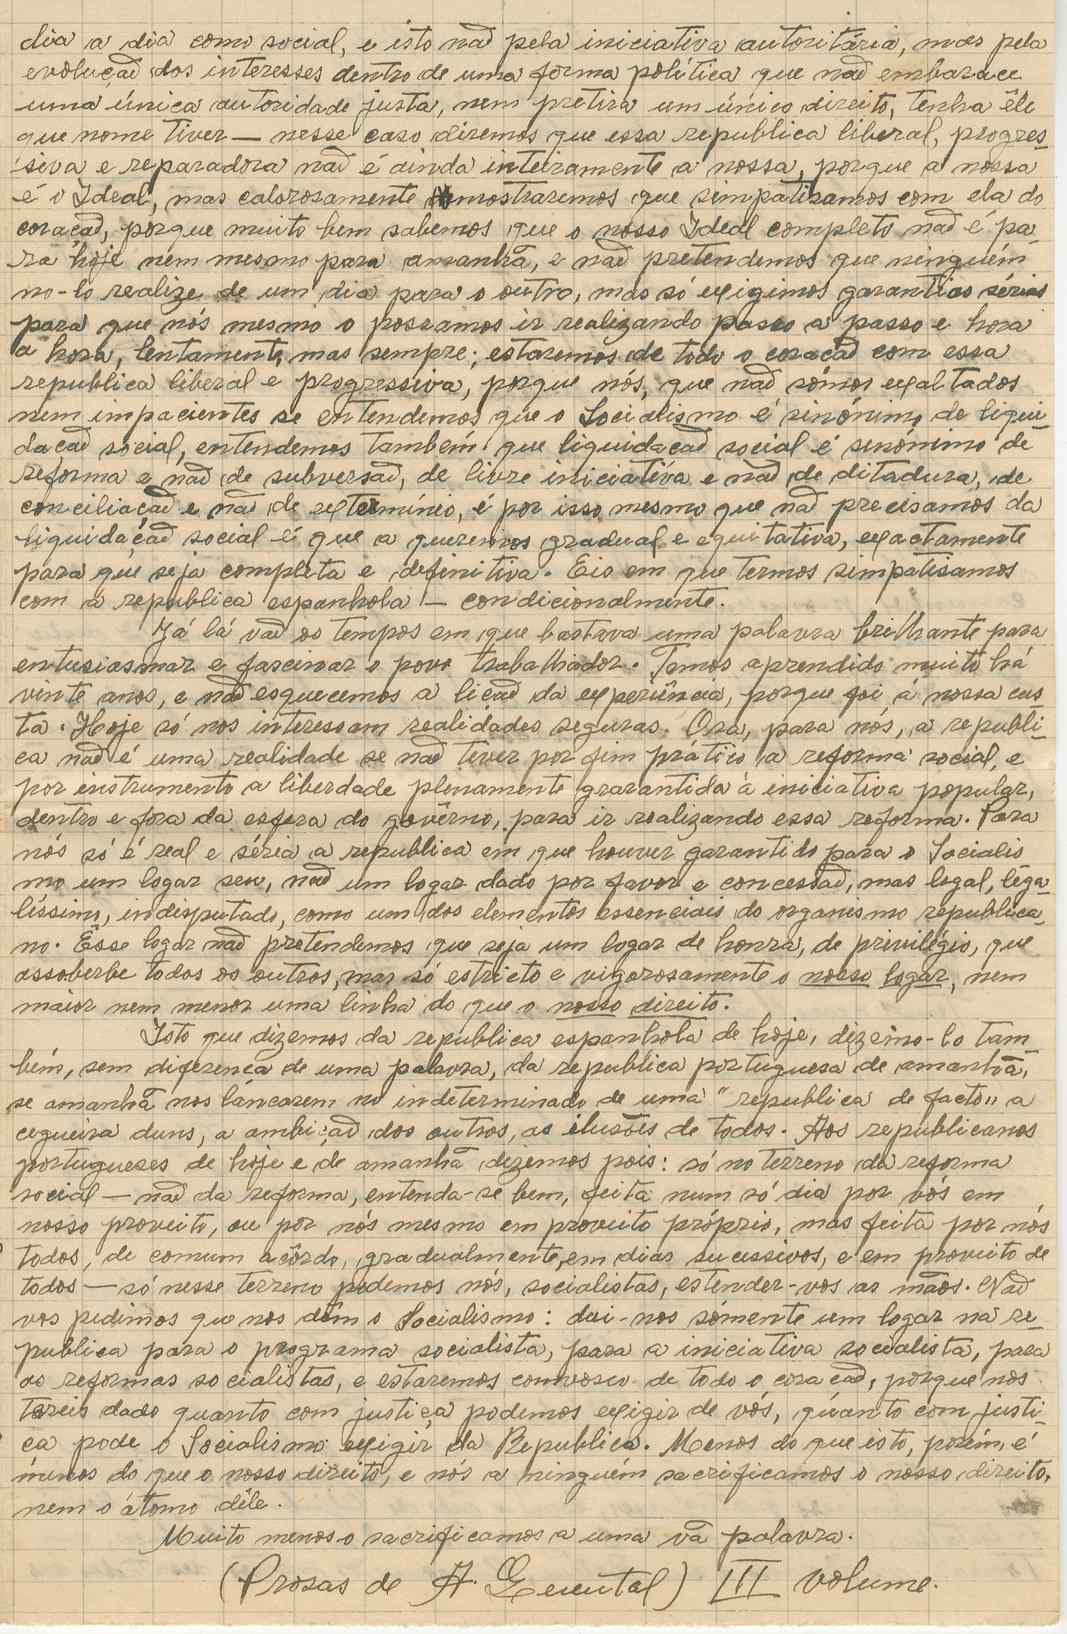 dia a dia como social, e isto não pela iniciativa autoritária, mas pela
evolução dos interesses dentro de uma forma política que não embarace
uma única autoridade justa, nem pretira um único direito, tenha êle
que nome tiver — nesse caso diremos que essa republica liberal, progres-
siva e reparadora não é ainda inteiramente a nossa, porque a nossa
é o Ideal, mas calorosamente mostraremos que simpatisamos com ela do
coração, porque muito bem sabemos que o nosso Ideal completo não é pa-
ra hoje nem mesmo para amanhã, e não pretendemos que ninguém
no-lo realize de um dia para o outro, mas só exigimos garantias sérias
para que nós mesmo o possamos ir realizando passo a passo e hora
a hora, lentamente, mas sempre; estaremos de todo o coração com essa
republica liberal e progressiva, porque nós, que não sômos exaltados
nem impacientes se entendemos que o Socialismo é sinónimo de liqui-
dação social, entendemos também que liquidação social é sinónimo de
reforma e não de subversão, de livre iniciativa e não de ditadura, de
conciliação e não de extermínio, é por isso mesmo que não precisamos da
liquidação social é que a queremos gradual e equitativa, exactamente
para que seja completa e definitiva. Eis em que termos simpatisamos
com a republica espanhola — condicionalmente.
Já lá vão os tempos em que bastava uma palavra brilhante para
entusiasmar e fascinar o povo trabalhador. Temos aprendido muito há
vinte anos, e não esquecemos a lição da experiência, porque foi á nossa cus-
ta. Hoje só nos interessam realidades seguras. Ora, para nós, a republi-
ca não é uma realidade se não tiver por fim prático a reforma social, e
por instrumento a liberdade plenamente grarantida á iniciativa popular,
dentro e fora da esfera do govêrno, para ir realizando essa reforma. Para
nós só é real e séria a republica em que houver garantido para o Socialis
mo um logar seu, não um logar dado por favor e concessão, mas legal, lega-
líssimo, indisputado, como um dos elementos essenciais do organismo republica-
no. Êsse logar não pretendemos que seja um logar de honra, de privilégio, que
assoberbe todos os outros, mas só estricto e vigorosamente o nosso logar, nem
maior nem menor uma linha do que o nosso direito.
Isto que dizemos da republica espanhola de hoje, dizêmo-lo tam-
bém, sem diferença de uma palavra, da republica portuguesa de amanhã,
se amanhã nos lancarem no indeterminado de uma "republica de facto" a
cegueira duns, a ambição dos outros, as ilusões de todos. Aos republicanos
portugueses de hoje e de amanhã dizemos pois: só no terreno da reforma
social — não da reforma, entenda-se bem, feita num só dia por vós em
nosso proveito, ou por nós mesmo em proveito próprio, mas feita por nós
todos, de comum acôrdo, gradualmente, em dias sucessivos, e em proveito de
todos — só nesse terreno podemos nós, socialistas, estender-vos as mãos. Não
vos pedimos que nos dêm o Socialismo: dai-nos sómente um logar na re-
publica para o programa socialista, para a iniciativa socialista, para
as reformas socialistas, e estaremos convosco de todo o coração, porque nos
tereis dado quanto com justiça podemos exigir de vós, quanto com justi-
ça pode o Socialismo exigir da Republica. Menos do que isto, porém, é
menos do que o nosso direito, e nós a ninguém sacrificamos o nosso direito,
nem o átomo dêle.
Muito menos o sacrificamos a uma vã palavra.
(Prosas de A. Quental) III volume.